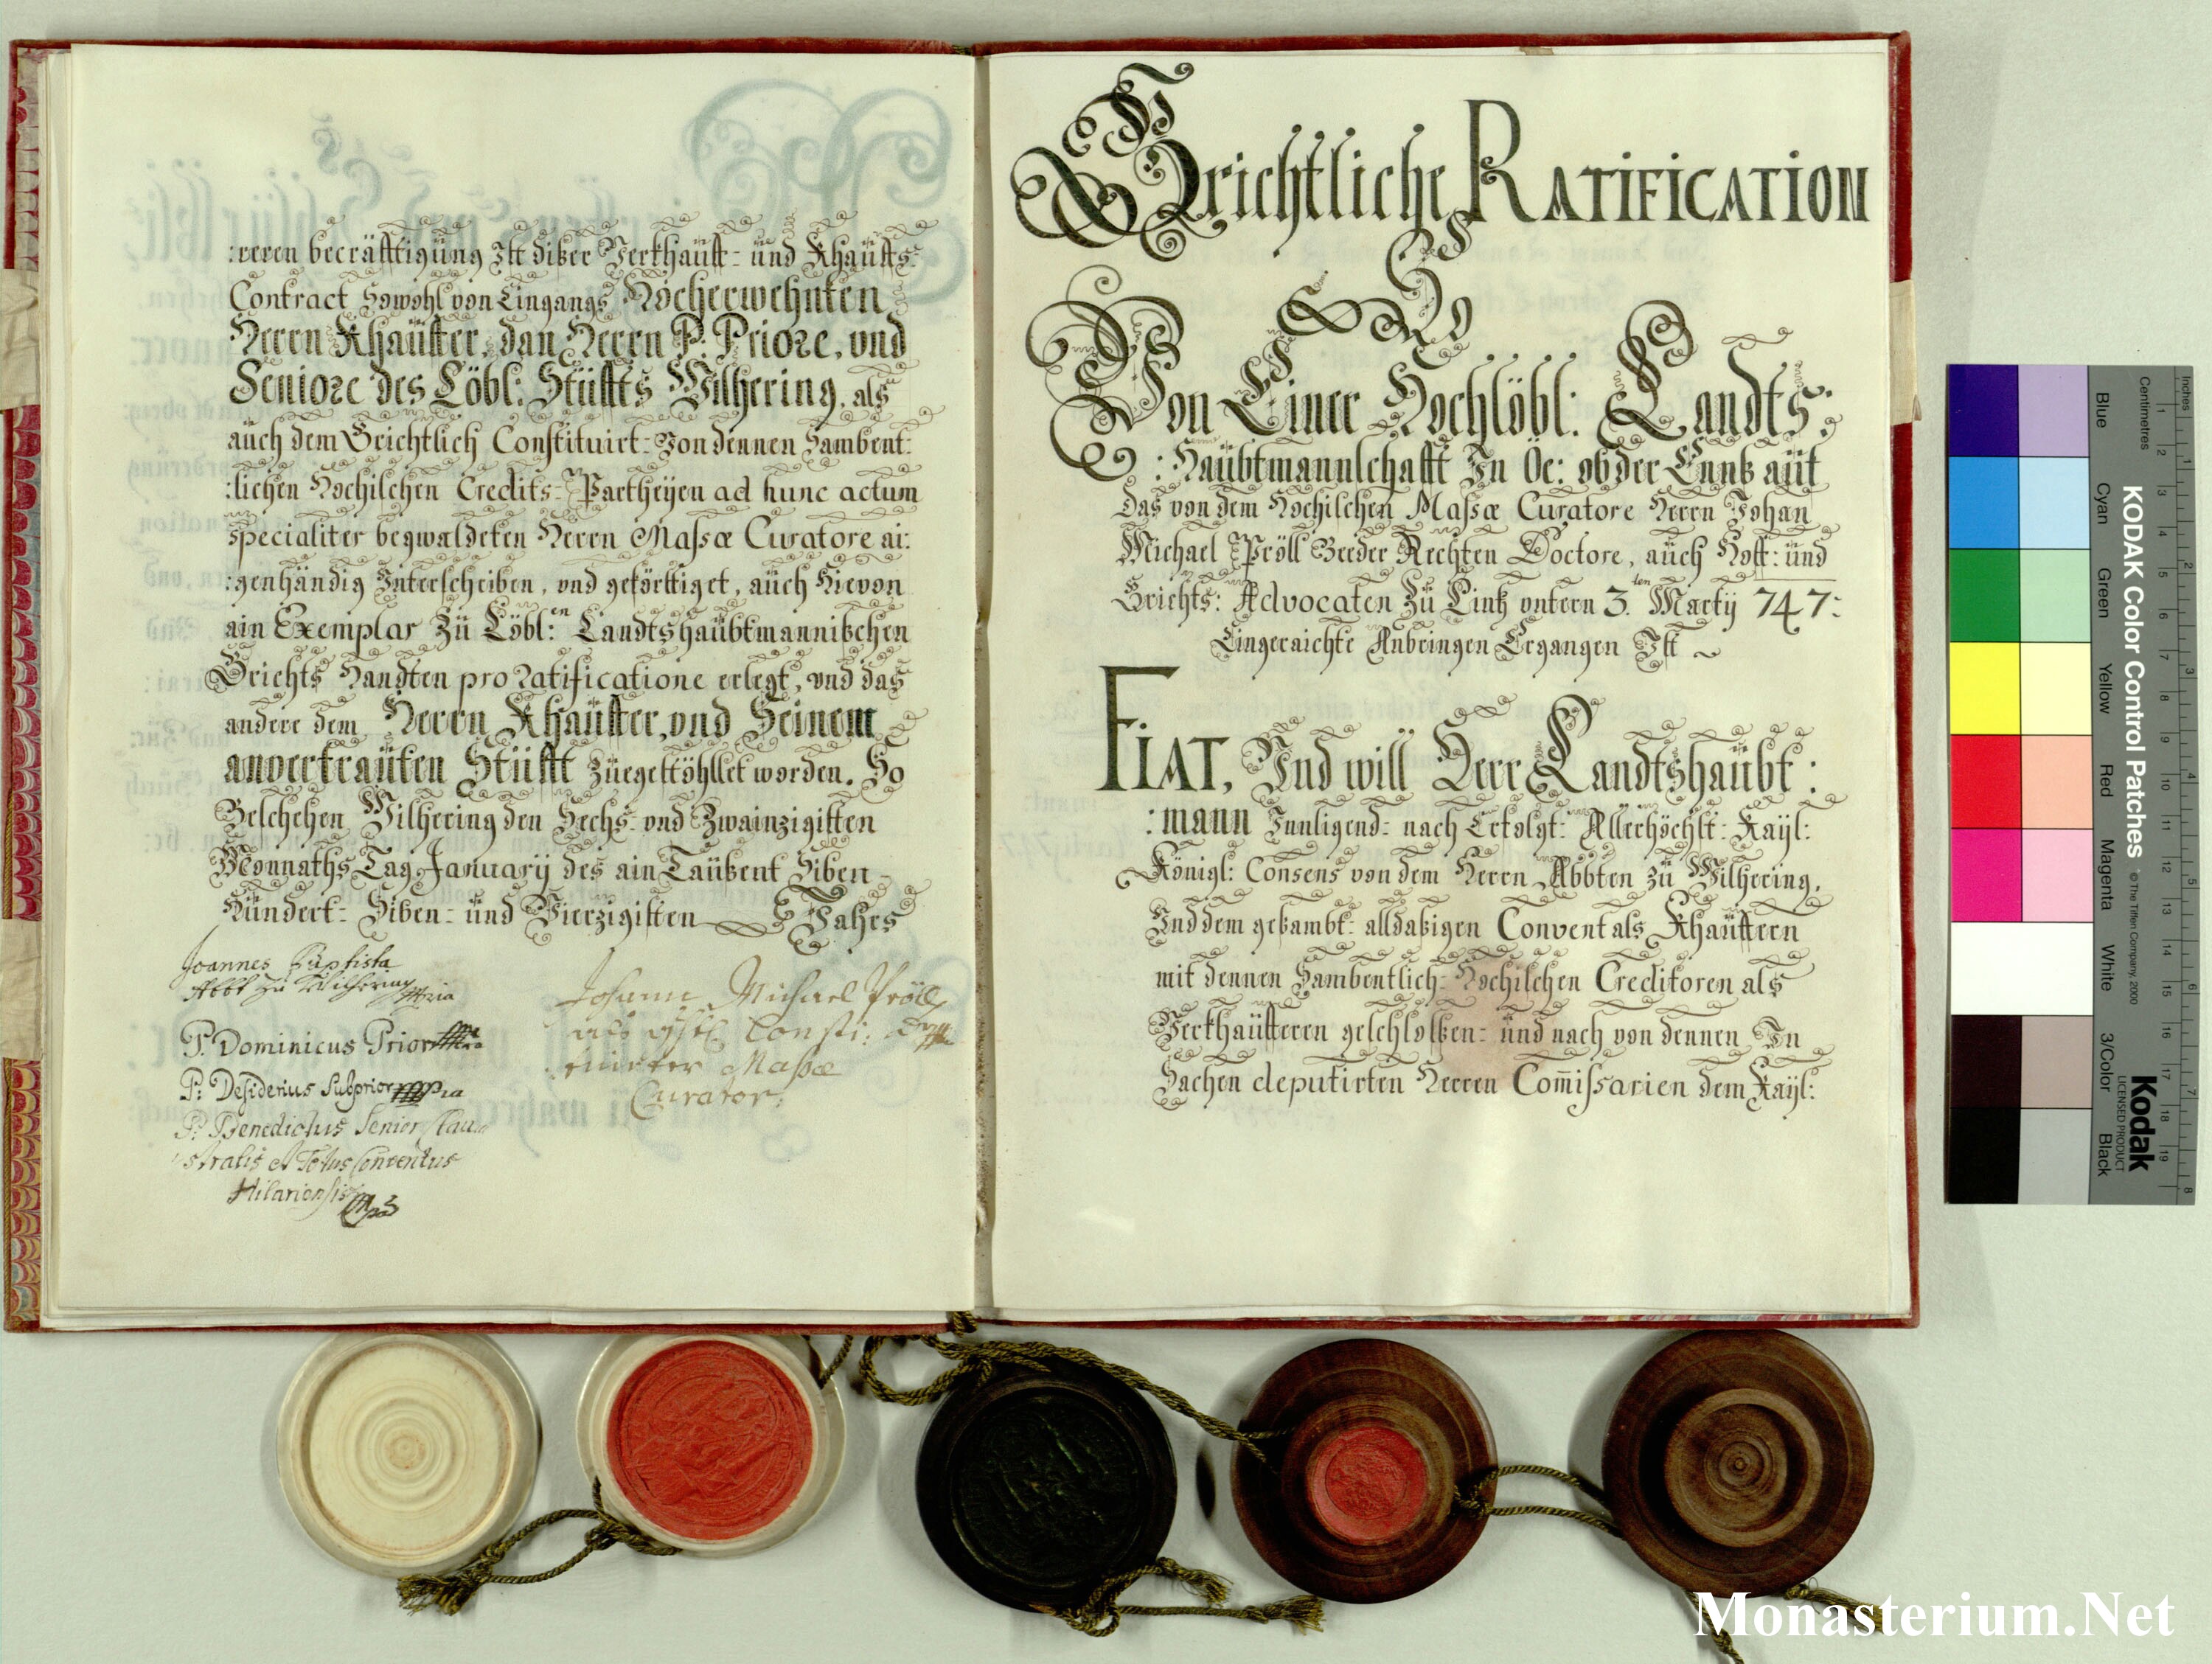 :reren becräfftigüng Ist dißer Verkhaüff- und Khaüffs-
Contract Sowohl von Eingangs Hocherwehnten
Herrn Khaüffer, dan Herrn P. Priore, und
Seniore des Löbl: Stüffts Wilhering, als
aüch dem Grichtlich Constituirt- Von dennen Sambent:
:lichen Hochischen Credits- Partheÿen ad hunc actum
specialiter begwaldeten Herrn Massæ Curatore ai:
:genhändig Unterscheiben, und geförttiget, aüch Hievon
ain Exemplar Zü Löbl:en Landtshaübtmannischen
Grichts Handten pro Ratificatione erlegt, und das
andere dem Herrn Khaüffer, und Seinem
anvertraüten Stüfft züegestöhllet worden. So
Beschehen Wilhering den Sechs- und Zwainzigisten
Monnaths Tag Januarÿ des ain Taüßent Siben-
Hündert- Siben- und Vierzigisten Jahrs
Joannes Baptista
Abbt zu Wilhering Mpria
P. Dominicus Prior
P: Desiderius Subprior Mpria
P: Benedictus Senior Clau
stralis et Totus Conventus
Hilariensis
Johann Michael Pröll
Consti:
Massæ
Curator.
Grichtliche RATIFICATION
So
Von Einer Hochlöbl: Landts:
:Haübtmannschafft In Öe: ob der Ennß aüf
das von dem Hochischen Massæ Curatore Herrn Johan
Michael Pröll Beeder Rechten Doctore, aüch Hoff: ünd
Grichts: Advocaten Zü Lintz untern 3.ten Martÿ 747:
Eingeraichte Anbringen Ergangen Ist
FIAT, Und will Herr Landtshaübt:
:mann Innligend- nach Erfolgt- Allerhöchst- Kaÿl:
Königl: Consens von dem Herrn Abbten zü Wilhering,
Und dem gesambt- alldaßigen Convent als Khaüffern
mit dennen Sambentlich- Hochischen Creditoren als
Verkhaüfferen geschlossen- ünd nach von dennen In
Sachen deputirten Herren Com̄issarien dem Kaÿl:
KODAK Color Control Patches
© The Tiffen Company, 2000
Kodak
LICENSED PRODUCT
Inches
Centimetres
Blue
Cyan
Green
Yellow
Red
Magenta
White
3/Color
Black
Monasterium.Net